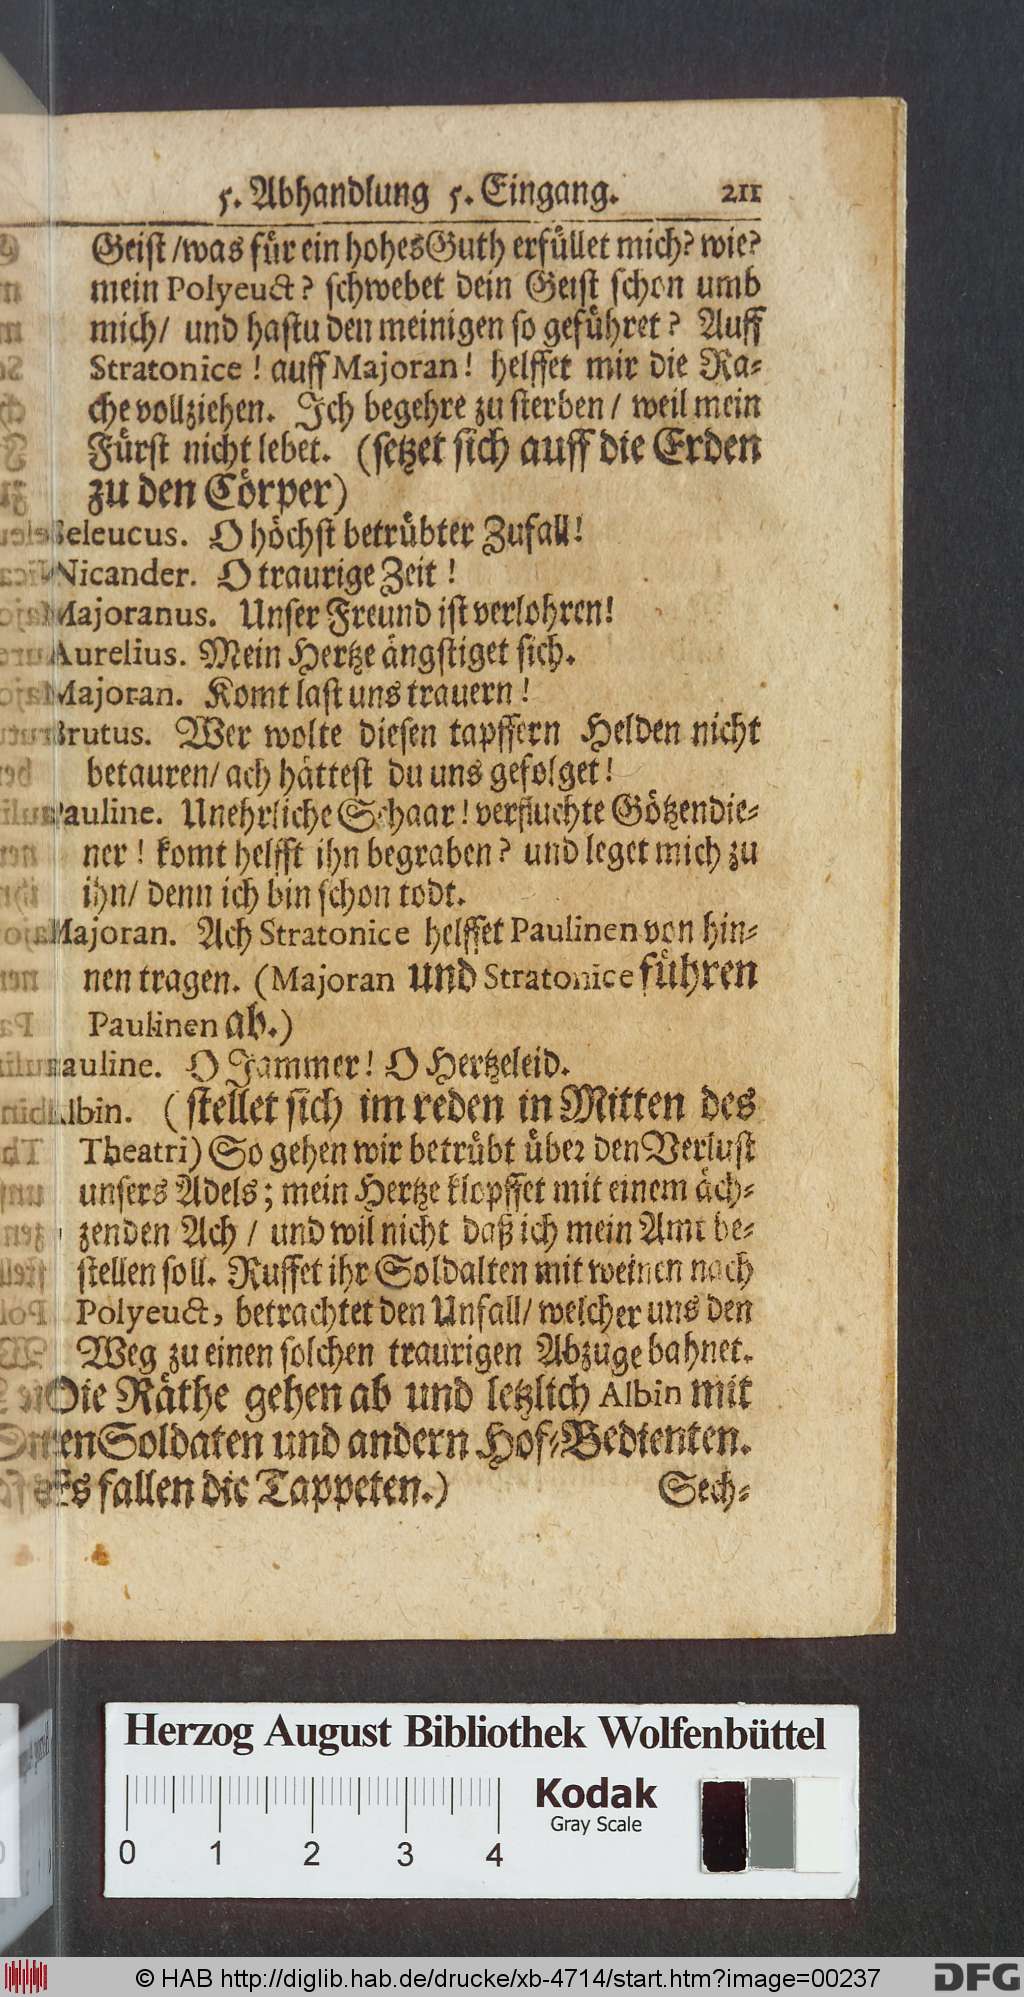 5. Abhandlung 5. Eingang. 211
Geist /was für ein hohes Guth erfüllet mich? wie?
mein Polyeuct? schwebet dein Geist schon umb
mich/ und hastu den meinigen so geführet? Auff
Stratonice! auff Majoran! helffet mir die Ra-
che vollziehen. Ich begehre zu sterben/ weil mein
Fürst nicht lebet. (setzet sich auff die Erden
zu den Cörper)
Seleucus. O höchst betrübter Zufall!
Nicander. O traurige Zeit!
Majoranus. Unser Freund ist verlohren!
Aurelius. Mein Hertze ängstiget sich.
Majoran. Komt last uns trauern!
Brutus. Wer wolte diesen tapffern Helden nicht
betauren/ ach hättest du uns gefolget!
Pauline. Unehrliche Schaar! verfluchte Götzendie-
ner! komt helfft ihn begraben? und leget mich zu
ihn/ denn ich bin schon todt.
Majoran. Ach Stratonice helffet Paulinen von hin-
nen tragen. (Majoran und Stratonice führen
Paulinen ab.)
Pauline. O Jammer! O Hertzeleid.
Albin. (stellet sich im reden in Mitten des
Theatri) So gehen wir betrübt über den Verlust
unsers Adels; mein Hertze klopffet mit einem äch-
zenden Ach / und wil nicht daß ich mein Amt be-
stellen soll. Ruffet ihr Soldalten mit weinen nach
Polyeuct, betrachtet den Unfall/ welcher uns den
Weg zu einen solchen traurigen Abzuge bahnet.
Die Räthe gehen ab und letzlich Albin mit
den Soldaten und andern Hof-Bedienten.
Es fallen die Tappeten.) Sech-
Herzog August Bibliothek Wolfenbüttel
Kodak
Gray Scale
0 1 2 3 4
© HAB http://diglib.hab.de/drucke/xb-4714/start.htm?image=00237
DFG